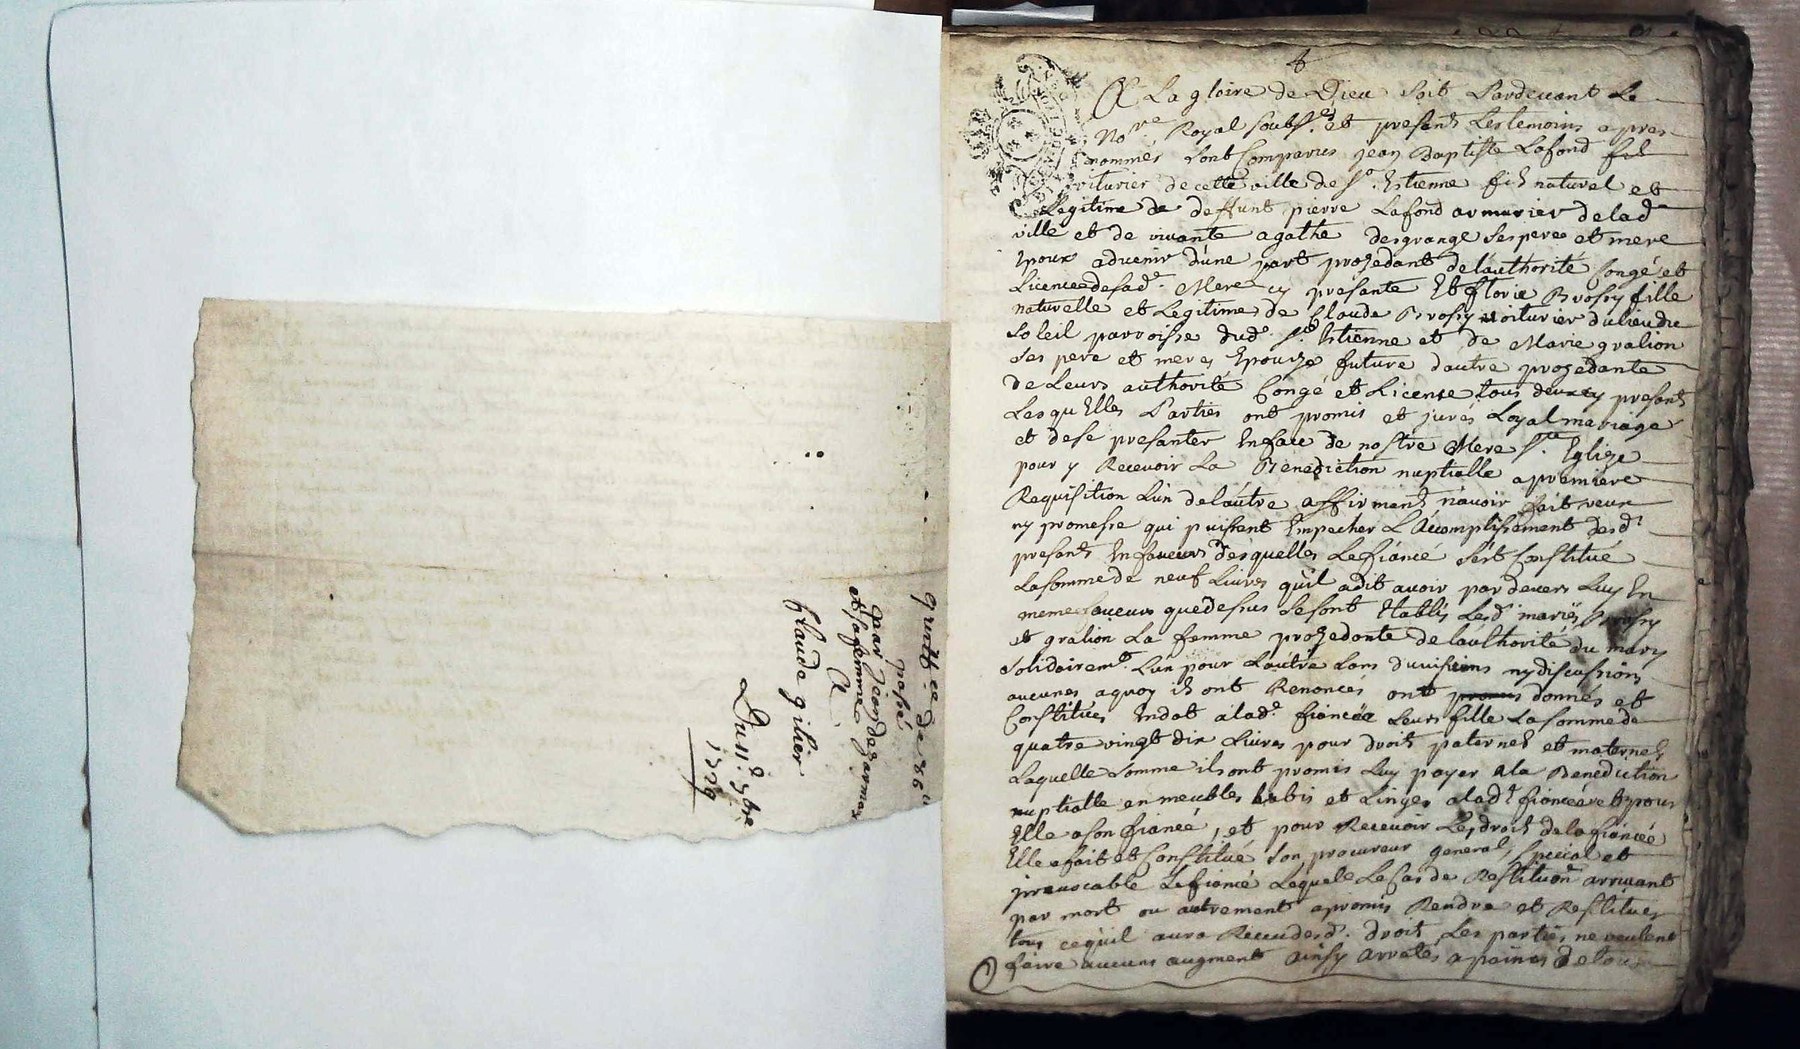 quittce de 86ll
passé
par Jean desarmay
et sa femme
A
Claude gilier
Du 11e 9bre
1729
A La gloire de Dieu soit Pardevant Le
Nore. Royal soubs.é et presents Les temoins apres
nommés sont Comparus jean Baptiste Lafond fils
voiturier de cette ville de St. Estienne fils naturel et
Legitime de deffunt pierre Lafond armurier de lade
ville et de vivante agathe desgrange ses pere et mere
Epoux advenir d'une part prozedant de lauthorité Congé et
Licence de sade. Mere cy presante Et florie Brossy fille
naturelle et Legitime de Claude Brossy voiturier du lieu du
Soleil parroisse dud. St. Estienne et de Marie gralion
Ses pere et mere, Epouze future dautre prozedante
de Leurs authorité Congé et License tous deux cy presants
Lesquelles Parties ont promis et jurés Loyal mariage
et de se presanter En face de nostre Mere Ste. Eglize
pour y Recevoir La Benediction nuptialle a premiere
Requisition Lun de lautre affirmants n'avoir fait veux
ny promesse qui puissent Empecher L'Accomplissement desdt
presants En faveurs desquelles Le fiancé s'est Constitué
La somme de neuf Livres qu'il a dit avoir par devers Luy En
meme faveurs que dessus se sont Etablis Lesd. mariés Brossy
et gralion La femme prozedante de lauthorité du mary
Solidairemt. Lun pour Lautre sans divisions ny discussions
aucunes a quoy ils ont Renoncés ont promis donnés et
Constitués En dot a lade. fiancée Leurs fille La somme de
quatre vingt dix Livres pour droits paternels et maternels
Laquelle somme ils ont promis Luy payer a la Benediction
nuptialle en meubles habis et Linges a ladt fiancée et pour
Elle a son fiancé, et pour Recevoir Les droits de la fiancée
Elle a fait et Constitué son procureur general, special et
jrrevocable Le fiancé Lequel Le Cas de Restituon arrivant
par mort ou autrement a promis Rendre et Restituer
tous ce qu'il aura Receu desd. droits Les parties ne veulent
faire aucuns augment ainsy arretés a paines de tous